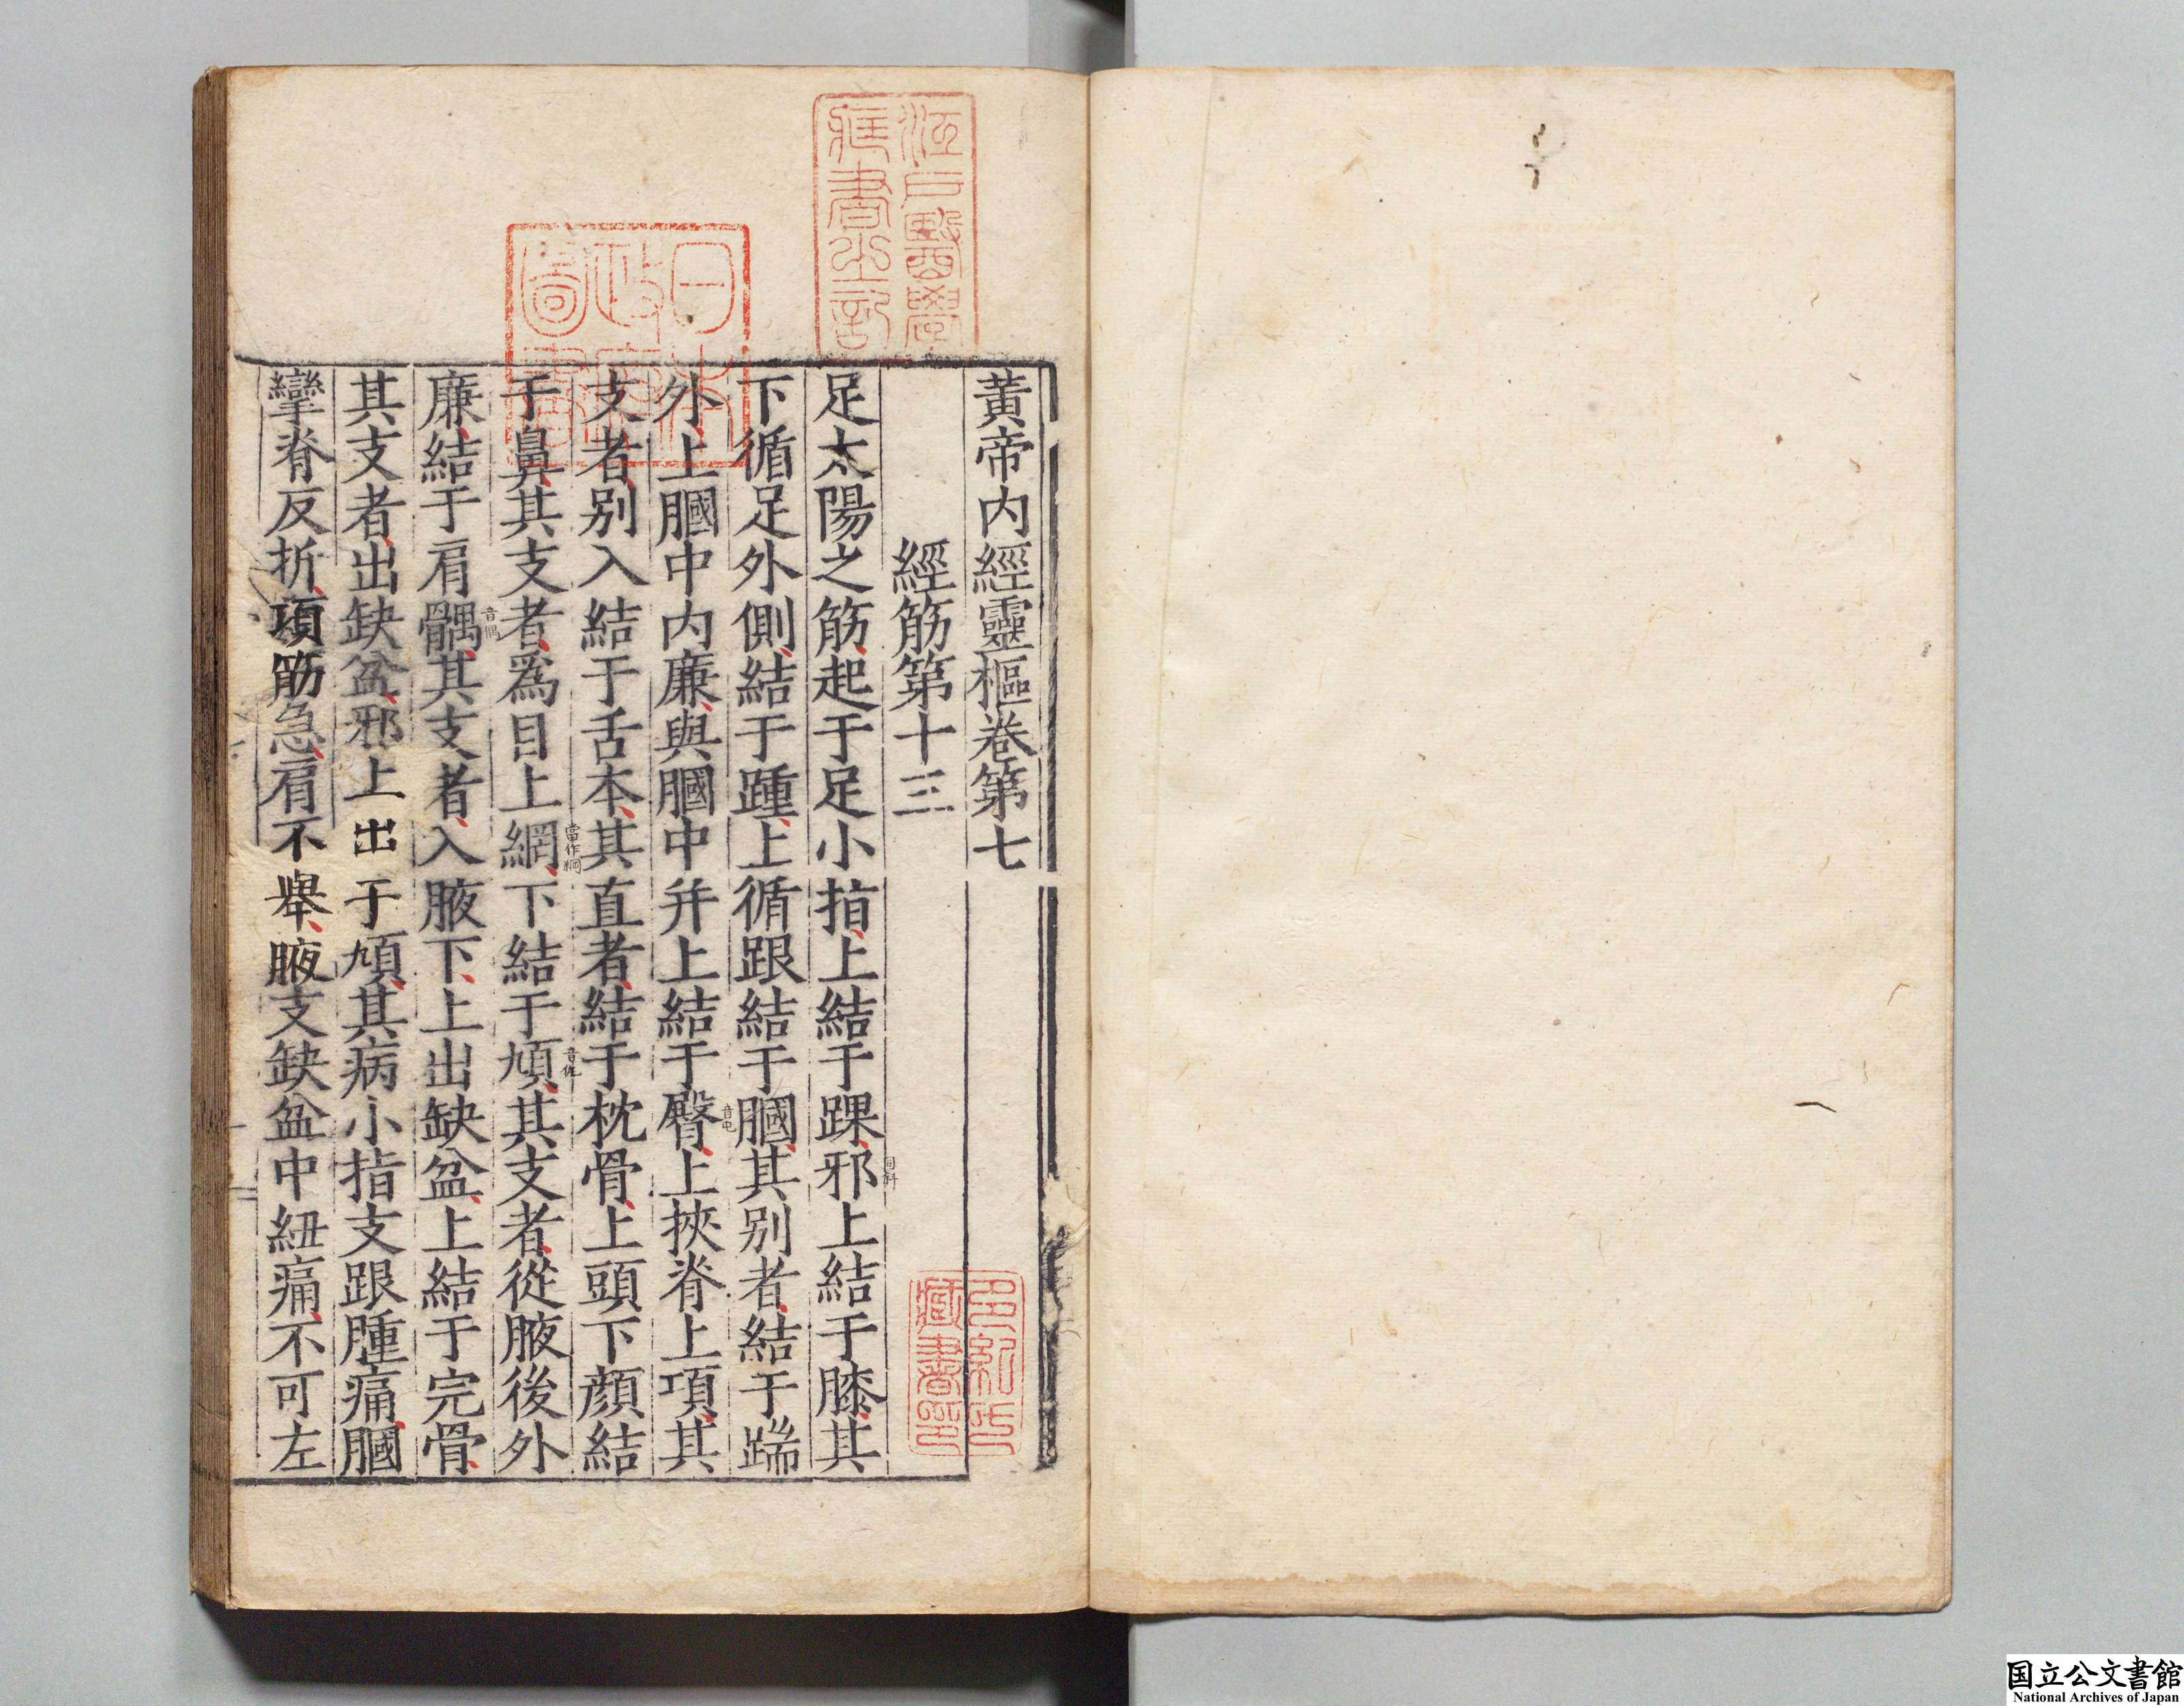 黃帝内經靈樞卷第七
經筋第十三
足太陽之筋起于足小指上結于踝邪上結于膝其
同斜
下循足外側結于踵上循跟結于膕其别者結于踹
外上膕中内廉與膕中并上結于臀上挾脊上項其
音屯
支者别入結于舌本其直者結于枕骨上頭下顔結
于鼻其支者爲目上網下結于頄其支者從腋後外
當作綱
廉結于肩髃其支者入腋下上出缺盆上結于完骨
其支者出缺盆邪上出于頄其病小指支跟腫痛膕
攣脊反折項筋急肩不舉腋支缺盆中紐痛不可左
江戸醫學
藏書之記
日本
政府
圖書
藏書印
国立公文書館
National Archives of Japan